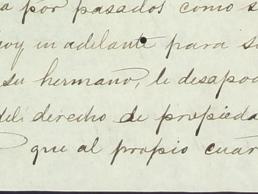 a por pasados como s
oy in adelante para s
su hermano, le desapod
del derecho de propieda
que al propio cuar